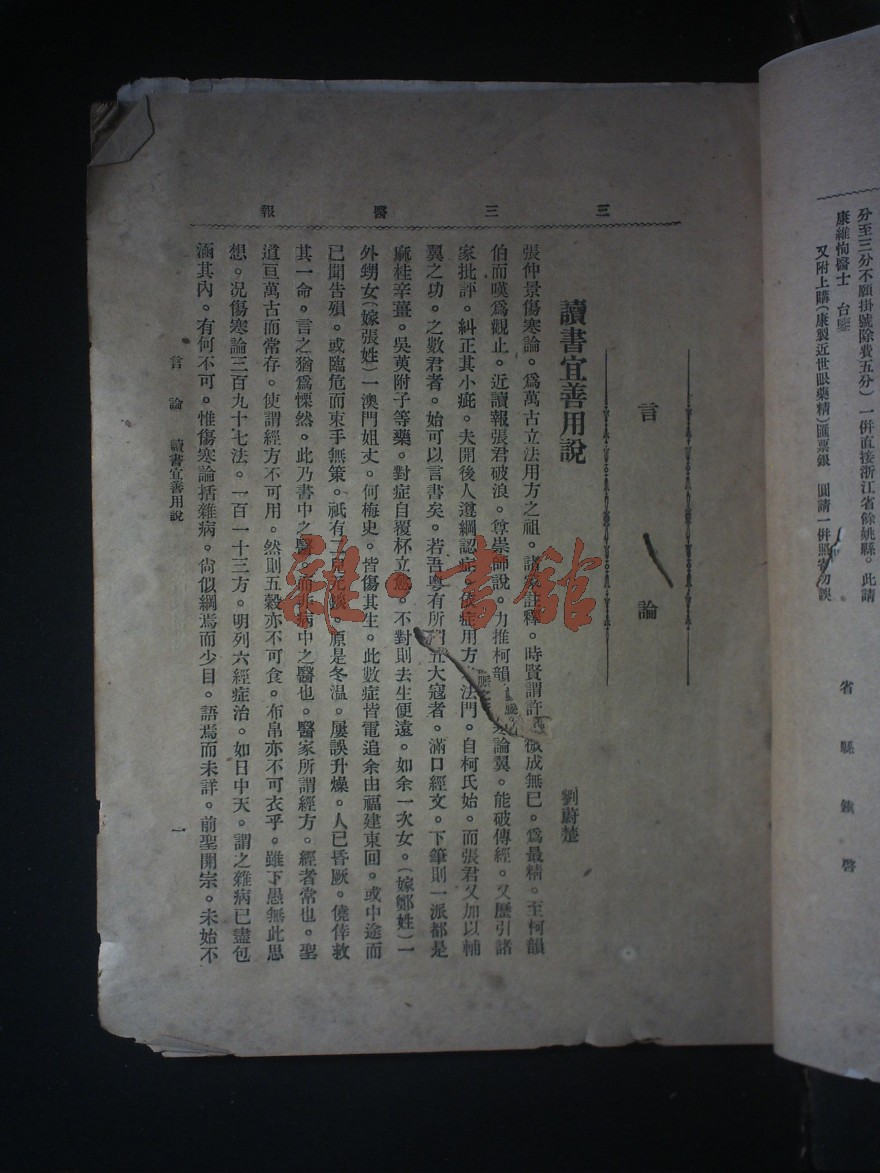 分至三分不願掛號除費五分）一併直接浙江省餘姚縣。此請
康維恂醫士 台鑒
又附上購（康製近世眼藥精）匯票銀 圓請一併照寄勿誤
省 縣 鎮 啓
三 三 醫 報
言 論
讀書宜善用說
劉蔚楚
張仲景傷寒論。爲萬古立法用方之祖。諸家註釋。時賢謂許 微成無已。爲最精。至柯韻
伯而嘆爲觀止。近讀報張君破浪。尊崇師說。力推柯韻 論翼。能破傳經。又歷引諸
家批評。糾正其小疵。夫開後人遵綱認症。從症用方 法門。自柯氏始。而張君又加以輔
翼之功。之數君者。始可以言書矣。若吾粵有所謂五大寇者。滿口經文。下筆則一派都是
麻桂辛薑。吳萸附子等藥。對症自覆杯立愈。不對則去生便遠。如余一次女。（嫁鄭姓）一
外甥女（嫁張姓）一澳門姐丈。何梅史。皆傷其生。此數症皆電追余由福建東回。或中途而
已聞告殞。或臨危而束手無策。祇有 兒元 。原是冬温。屢誤升燥。人已昏厥。僥倖救
其一命。言之猶爲慄然。此乃書中之醫。而非病中之醫也。醫家所謂經方。經者常也。聖
道亘萬古而常存。使謂經方不可用。然則五穀亦不可食。布帛亦不可衣乎。雖下愚無此思
想。况傷寒論三百九十七法。一百一十三方。明列六經症治。如日中天。謂之雜病已盡包
涵其內。有何不可。惟傷寒論括雜病。尙似綱焉而少目。語焉而未詳。前聖開宗。未始不
言 論 讀書宜善用說 一
雜·書館